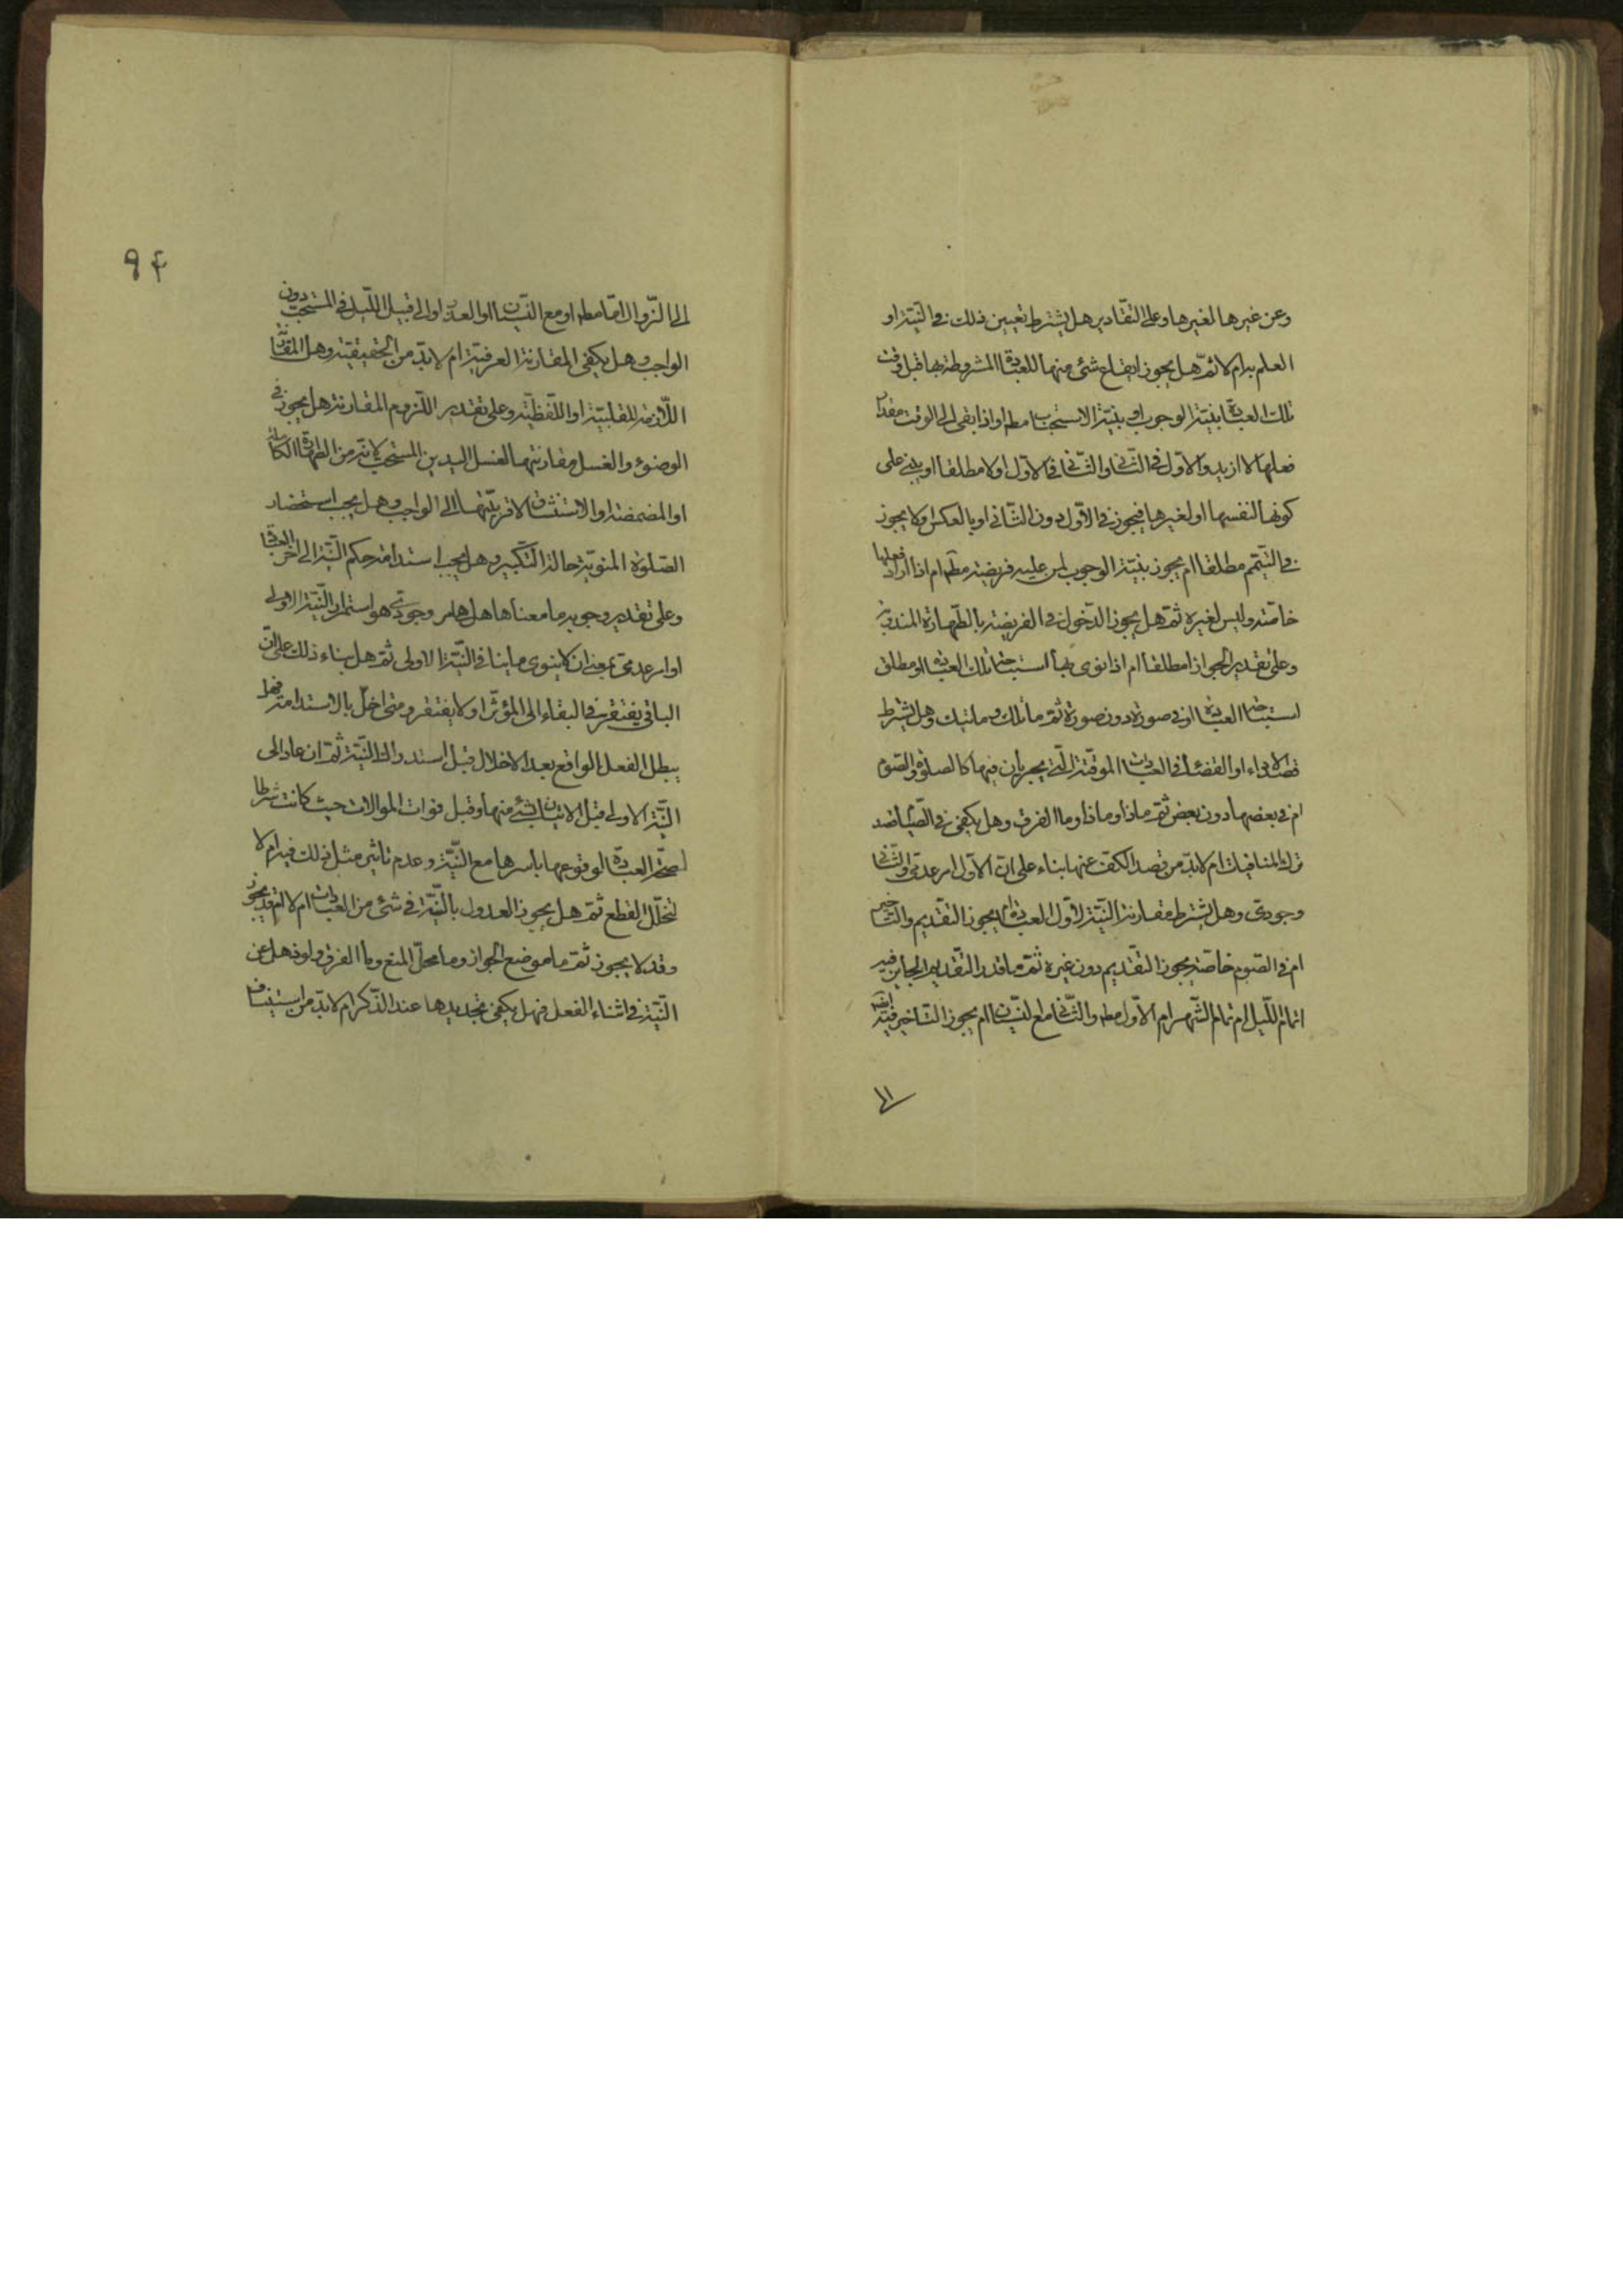 وعن غيرها لغيرها وعلى التقادير هل يشترط تعيين ذلك في النيّة او
العلم به ام لا ثمّ هل يجوز ايقاع شئ منها للعبادة المشروطة بها قبل وقت
تلك العبادة بنيّة الوجوب او بنيّة الاستحباب مط او اذا بقى الى الوقت مقدار
فعلها لا ازيد والاوّل في الثّاني والثّاني في الاوّل اولا مطلقا او يبنى على
كونها لنفسها او لغيرها فيجوز في الاوّل دون الثّاني او بالعكس ولا يجوز
في التيّمم مطلقا ام يجوز بنيّة الوجوب لمن عليه فريضة مط ام اذا اراد فعلها
خاصّة وليس لغيره ثمّ هل يجوز الدّخول في الفريضة بالطّهارة المندوبة
وعلى تقدير الجواز امطلقا ام اذا نوى بها استباحة تلك العبادة او مطلق
استباحة العبادة او في صورة دون صورة ثمّ ما تلك وما تيك وهل يشترط
قصد الاداء او القضاء في العبادات الموقّتة الّتي يجريان فيها كالصلوة والصّوم
ام في بعضها دون بعض ثمّ ماذا وماذا وما الفرق وهل يكفى في الصّيام قصد
ترك المنافيات ام لابدّ من قصد الكفّ عنها بناء على انّ الاوّل امر عدمّى والثّاني
وجودىّ وهل يشترط مقارنة النيّة لاوّل العبادة ام يجوز التقديم والتأخير
ام في الصّوم خاصّة يجوز التقديم دون غيره ثمّ ما قدر التّقديم الجايز فيه
اتمام اللّيل ام تمام الشّهر ام الاوّل مط والثّاني مع النّسيان ام يجوز التّاخير فيه ايضا
الى
٩۴
الى الزّوال امّا مط او مع النّسيان او العذر او الى قبيل اللّيل في المستحبّ دون
الواجب وهل يكفى المقارنة العرفيّة ام لابدّ من الحقيقيّة وهل المقارنة
اللّازمة للقلبيّة او اللّفظيّة وعلى تقدير اللّزوم المقارنة هل يجوز في
الوضوء والغسل مقارنتها لغسل اليدين المستحبّ لانّه من الطهارة الكاملة
او المضمضة او الاستنشاق لاقربيّتهما الى الواجب وهل يجب استحضار
الصّلوة المنويّة حالة التّكبير وهل يجب استدامة حكم النّيّة الى اخر العبادة
وعلى تقدير وجوبه ما معناها هل هي امر وجودىّ هو استمرار النّيّة الاولى
او امر عدمىّ بمعنى ان لا ينوى ما ينافي النيّة الاولى ثمّ هل بناء ذلك على انّ
الباقى يفتقر في البقاء الى المؤثّر او لا يفتقر ومتى اخلّ بالاستدامة فهل
يبطل الفعل الواقع بعد الاخلال قبل استدراك النّيّة ثمّ ان عاد الى
النّيّة الاولى قبل الاتيان بشئ منها وقبل فوات الموالات حيث كانت شرطا
لصحّة العبادة لوقوعها باسرها مع النّيّة وعدم تاثير مثل ذلك فيه ام لا
لتخلّل القطع ثمّ هل يجوز العدول بالنّيّة في شئ من العبادات ام لا ام قد يجوز
وقد لا يجوز ثمّ ما موضع الجواز وما محلّ المنع وما الفرق ولو ذهل عن
النّيّة في اثناء الفعل فهل يكفى تجديدها عند الذّكر ام لابدّ من استيناف